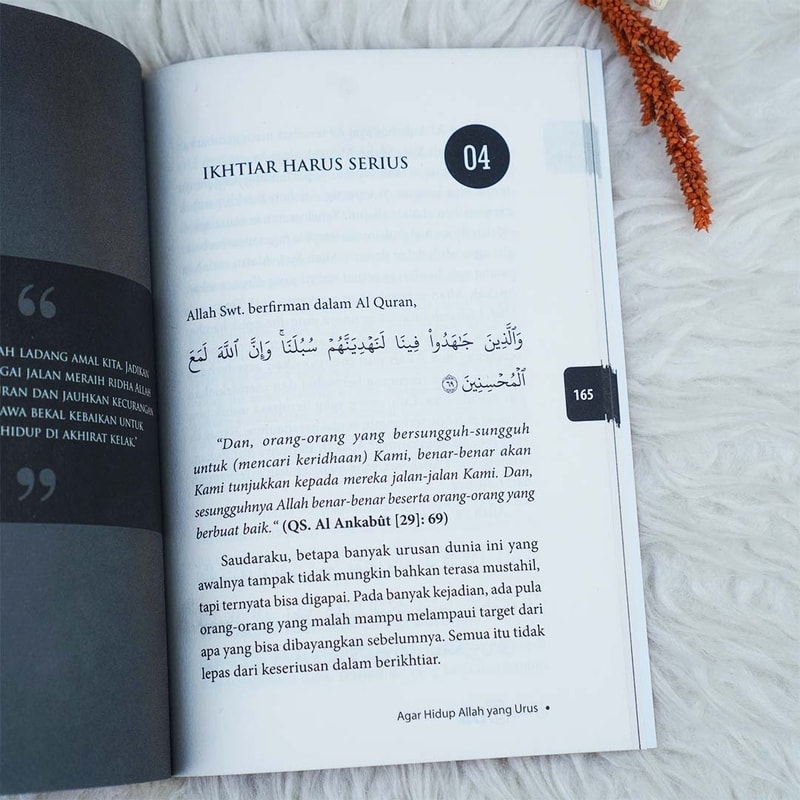 “
AH LADANG AMAL KITA. JADIKAN
GAI JALAN MERAIH RIDHA ALLAH
URAN DAN JAUHKAN KECURANGAN
AWA BEKAL KEBAIKAN UNTUK
HIDUP DI AKHIRAT KELAK."
”
IKHTIAR HARUS SERIUS
04
Allah Swt. berfirman dalam Al Quran,
وَٱلَّذِينَ جَـٰهَدُوا۟ فِينَا لَنَهْدِيَنَّهُمْ سُبُلَنَا ۚ وَإِنَّ ٱللَّهَ لَمَعَ
ٱلْمُحْسِنِينَ ٦٩
165
“Dan, orang-orang yang bersungguh-sungguh
untuk (mencari keridhaan) Kami, benar-benar akan
Kami tunjukkan kepada mereka jalan-jalan Kami. Dan,
sesungguhnya Allah benar-benar beserta orang-orang yang
berbuat baik.“ (QS. Al Ankabût [29]: 69)
Saudaraku, betapa banyak urusan dunia ini yang
awalnya tampak tidak mungkin bahkan terasa mustahil,
tapi ternyata bisa digapai. Pada banyak kejadian, ada pula
orang-orang yang malah mampu melampaui target dari
apa yang bisa dibayangkan sebelumnya. Semua itu tidak
lepas dari keseriusan dalam berikhtiar.
Agar Hidup Allah yang Urus •